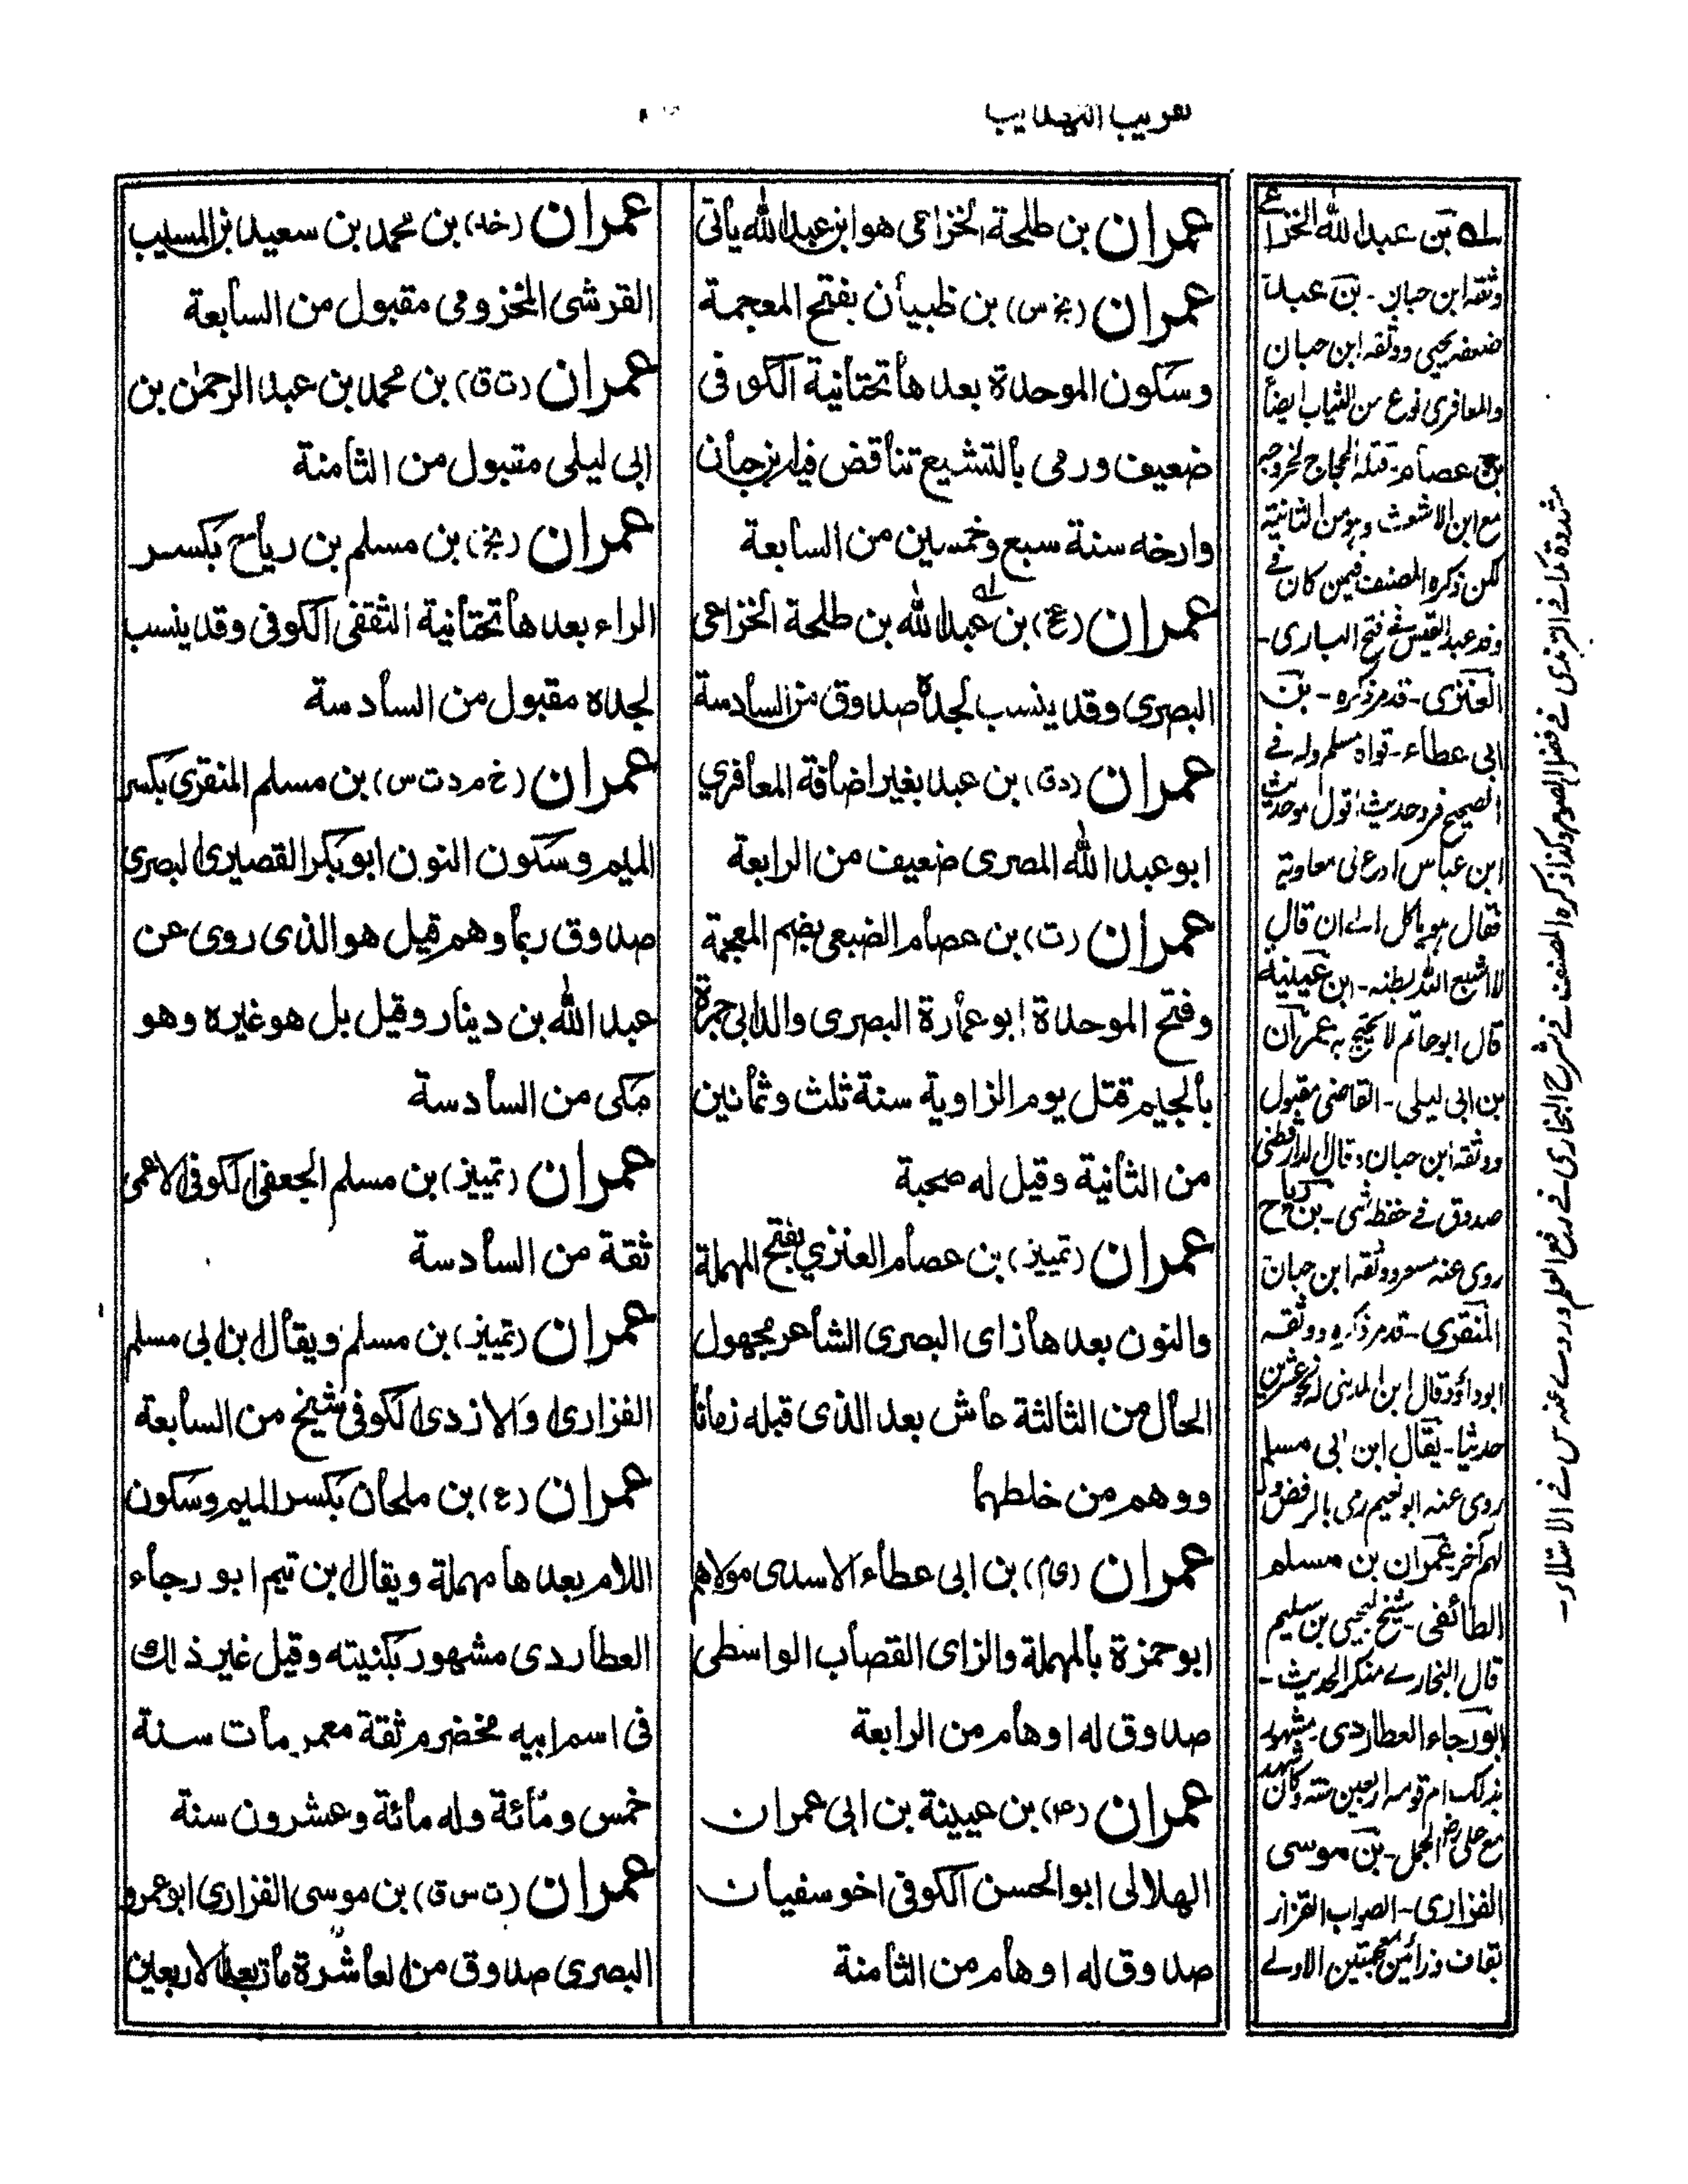 تقريب التهذيب
عمران بن طلحة الخزاعى هو ابن عبدالله يأتى
عمران (بخ س) بن ظبيان بفتح المعجمة
وسكون الموحدة بعدها تحتانية الكوفى
ضعيف ورمى بالتشيع تناقض فيه ابن حبان
وارخه سنة سبع وخمسين من السابعة
عمران (بخ) بن عبدالله بن طلحة الخزاعى
البصرى وقد ينسب لجده صدوق من السادسة
عمران (دق) بن عبد بغير اضافة المعافري
ابو عبد الله المصرى ضعيف من الرابعة
عمران (ت) بن عصام الضبعى بضم المعجمة
وفتح الموحدة ابو عمارة البصرى والد ابى جمرة
بالجيم قتل يوم الزاوية سنة ثلث وثمانين
من الثانية وقيل له صحبة
عمران (تمييز) بن عصام العنزي بفتح المهملة
والنون بعدها زاى البصرى الشاعر مجهول
الحال من الثالثة عاش بعد الذى قبله زمانا
ووهم من خلطهما
عمران (ى م) بن ابى عطاء الاسدى مولاهم
ابو حمزة بالمهملة والزاى القصاب الواسطى
صدوق له اوهام من الرابعة
عمران (عه) بن عيينة بن ابى عمران
الهلالى ابو الحسن الكوفى اخو سفيان
صدوق له اوهام من الثامنة
عمران (خد) بن محمد بن سعيد بن المسيب
القرشى المخزومى مقبول من السابعة
عمران (ت ق) بن محمد بن عبد الرحمن بن
ابى ليلى مقبول من الثامنة
عمران (بخ) بن مسلم بن رياح بكسر
الراء بعدها تحتانية الثقفى الكوفى وقد ينسب
لجده مقبول من السادسة
عمران (خ م د ت س) بن مسلم المنقرى بكسر
الميم وسكون النون ابو بكر القصير البصرى
صدوق ربما وهم قيل هو الذى روى عن
عبد الله بن دينار وقيل بل هو غيره وهو
مكى من السادسة
عمران (تمييز) بن مسلم الجعفى الكوفى الاعمى
ثقة من السادسة
عمران (تمييز) بن مسلم ويقال ابن ابى مسلم
الفزارى والازدى الكوفى شيخ من السابعة
عمران (ع) بن ملحان بكسر الميم وسكون
اللام بعدها مهملة ويقال ابن تيم ابو رجاء
العطاردى مشهور بكنيته وقيل غير ذلك
فى اسم ابيه مخضرم ثقة معمر مات سنة
خمس ومائة وله مائة وعشرون سنة
عمران (ت س ق) بن موسى الفزارى ابو عمرو
البصرى صدوق من العاشرة مات بعد الاربعين
له بن عبد الله الخزاعى
وثقه ابن حبان - بن عبد
ضعفه يحيى ووثقه ابن حبان
والمعافرى نوع من الثياب ايضاً
بن عصام - قتله الحجاج لخروجه
مع ابن الاشعث وهو من الثانية
لكن ذكره المصنف فيمن كان فى
وفد عبد القيس فى فتح البارى -
العنزى - قدمر ذكره - بن
ابى عطاء - قواه مسلم وله فى
الصحيح فرد حديث اقول هو حديث
ابن عباس ادع لى معاوية
فقال هو ياكل الى ان قال
لا اشبع الله بطنه - ابن عيينة
قال ابو حاتم لا يحتج به عمران
بن ابى ليلى - القاضى مقبول
ووثقه ابن حبان وقال الدارقطنى
صدوق فى حفظه شى - بن رباح
روى عنه مسعر ووثقه ابن حبان
المنقرى - قدمر ذكره ووثقه
ابوداؤد قال ابن المدينى له نحو عشرين
حديثا - يقال ابن ابى مسلم
روى عنه ابو نعيم رمى بالرفض وله
لهم آخر عمران بن مسلم
الطائفى - شيخ ليحيى بن سليم
قال البخارى منكر الحديث -
ابو رجاء العطاردى - مشهور
بذلك ام قومه اربعين سنة وكان شهد
مع على رض الجمل - بن موسى
الفزارى - الصواب القزاز
بقاف وزائين معجمتين الاولى
مشددة كما فى الترمذى فى فضل الصوم وكذا ذكره المصنف فى شرح البخارى فى رفع العلم وروى عنه س فى الاستلاء -